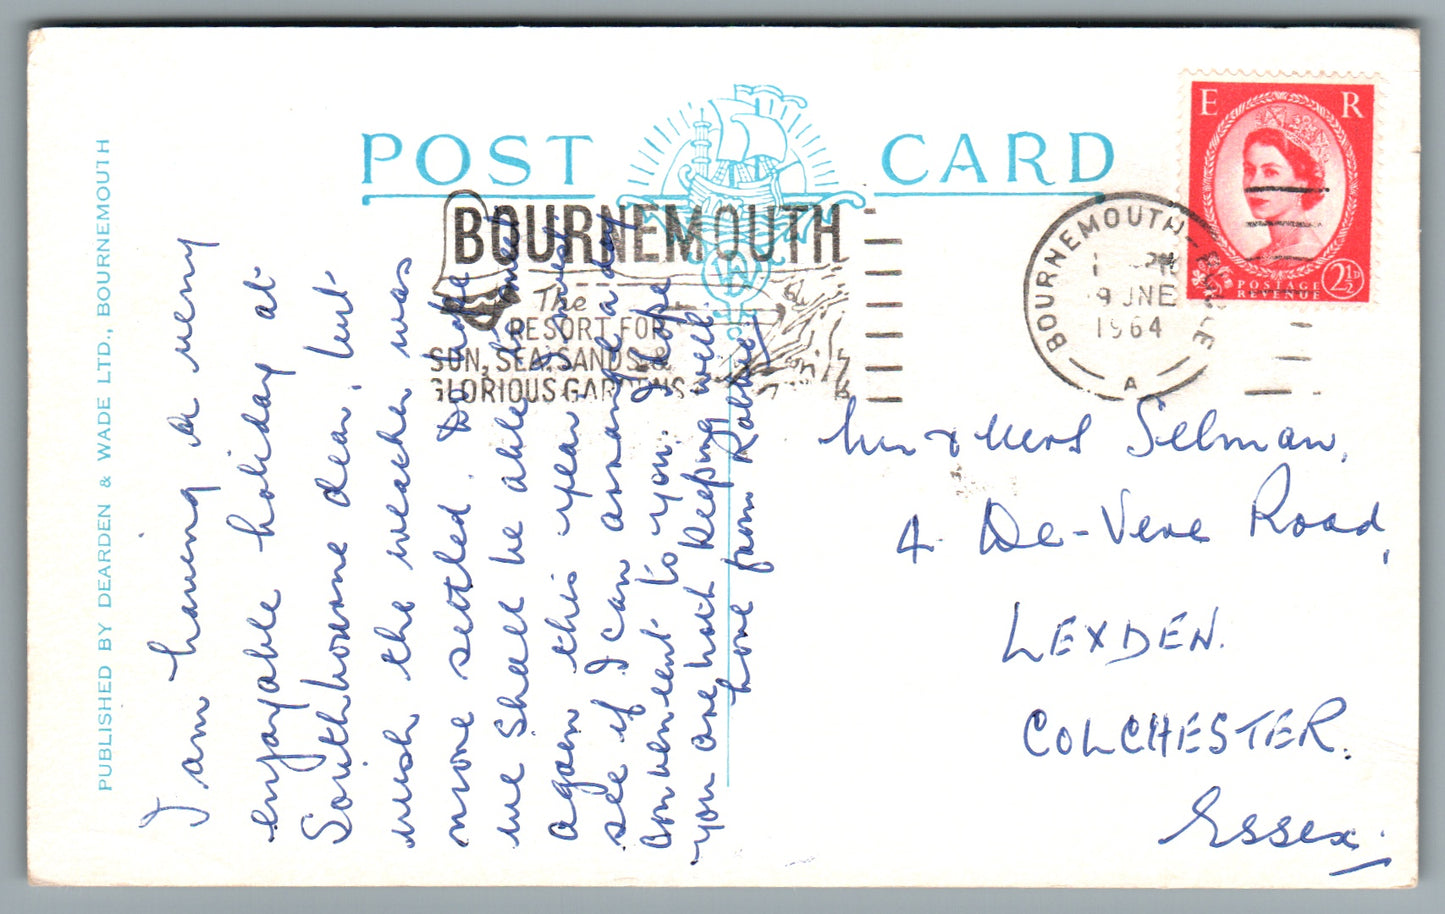 POST CARD
PUBLISHED BY DEARDEN & WADE LTD., BOURNEMOUTH
BOURNEMOUTH
The
RESORT FOR
SUN, SEA, SANDS &
GLORIOUS GARDENS
BOURNEMOUTH-POOLE
9 JNE
1964
A
E R
POSTAGE
REVENUE
2½D
I am having a very
enjoyable holiday at
Southbourne dear, but
wish the weather was
more settled. Do hope
we shall be able to meet
again this year. I must
see if I can arrange a day
convenient to you. I hope
you are both keeping well.
love from
Mr & Mrs Selman,
4. De-Vere Road,
LEXDEN.
COLCHESTER.
Essex.